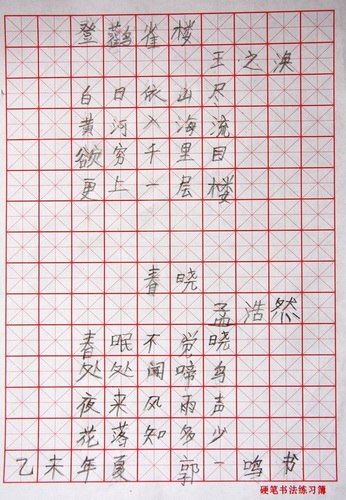 登鹳雀楼
王之涣
白日依山尽
黄河入海流
欲穷千里目
更上一层楼
春晓
孟浩然
春眠不觉晓
处处闻啼鸟
夜来风雨声
花落知多少
乙未年夏 郭一鸣书
硬笔书法练习簿